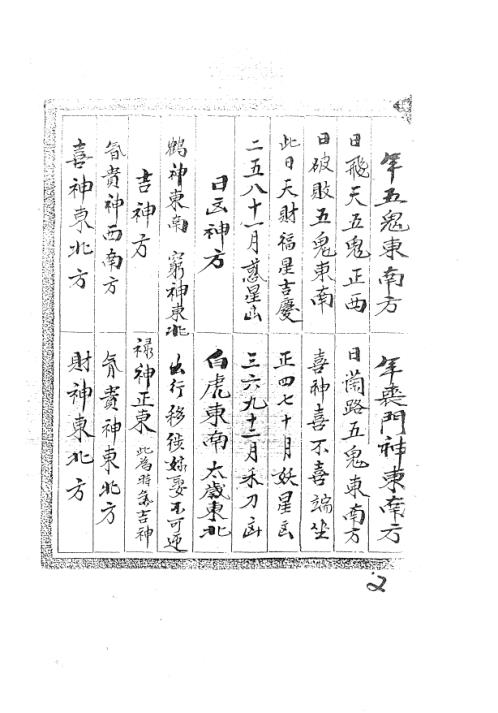 年五鬼東南方 年喪門神東南方
日飛天五鬼正西 日攔路五鬼東南方
日破敗五鬼東南 喜神喜不喜端坐
此日天財福星吉慶 正四七十月妖星凶
二五八十一月惑星凶 三六九十二月禾刀凶
日凶神方 白虎東南 太歲東北
鶴神東南 窮神東北 出行移徙嫁娶不可迎
吉神方 祿神正東 此為時家吉神
貴神西南方 貴神東北方
喜神東北方 財神東北方
2